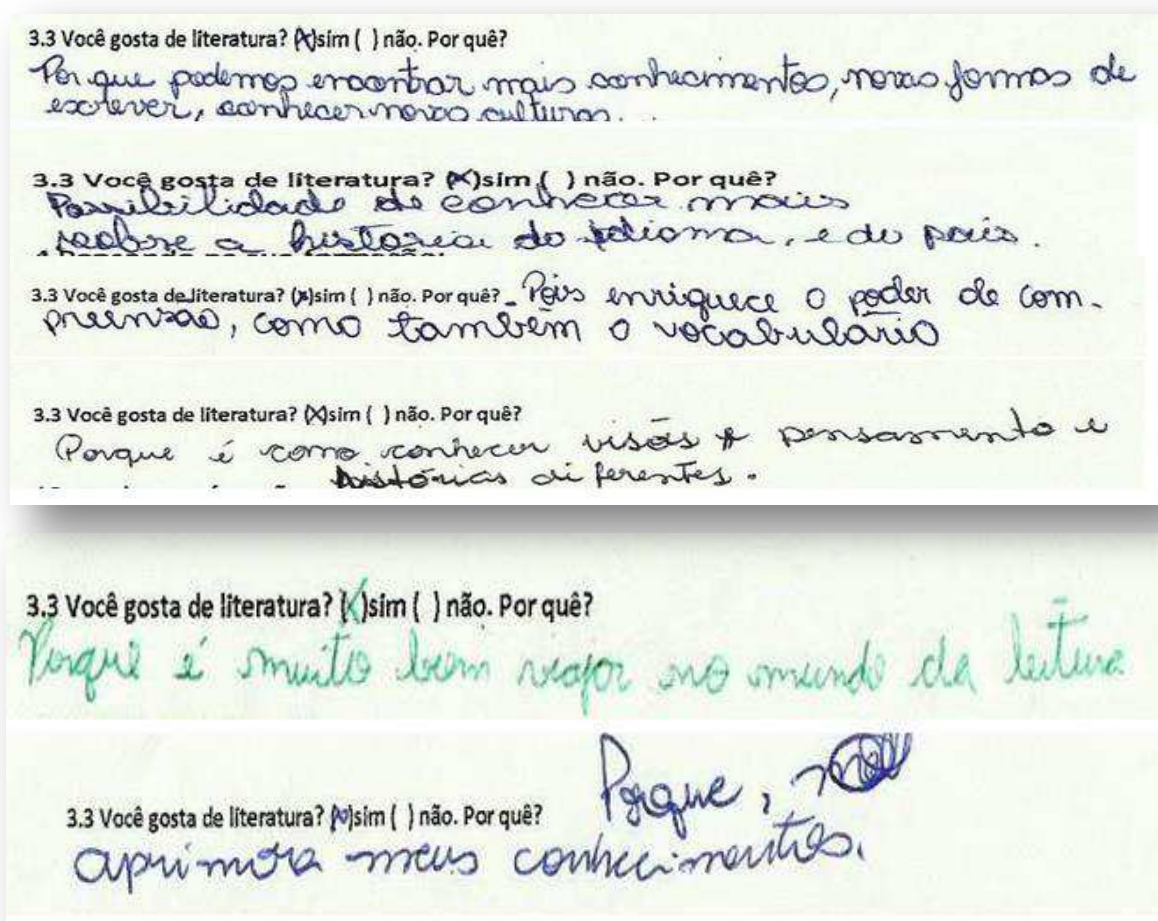 3.3 Você gosta de literatura? (X)sim ( ) não. Por quê?
Por que podemos encontrar mais conhecimentos, novas formas de
escrever, conhecer novas culturas.
3.3 Você gosta de literatura? (X)sim ( ) não. Por quê?
Possibilidade de conhecer mais
sobre a historia do idioma, e do pais.
3.3 Você gosta de literatura? (x)sim ( ) não. Por quê? Pois enriquece o poder de com-
preensão, como também o vocabulário
3.3 Você gosta de literatura? (X)sim ( ) não. Por quê?
Porque é como conhecer visões pensamento e
histórias diferentes.
3.3 Você gosta de literatura? (X)sim ( ) não. Por quê?
Porque é muito bom viajar no mundo da leitura
Porque,
3.3 Você gosta de literatura? (x)sim ( ) não. Por quê?
aprimora meus conhecimentos.